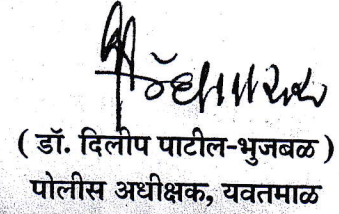 ( डॉ. दिलीप पाटील-भुजबळ )
पोलीस अधीक्षक, यवतमाळ